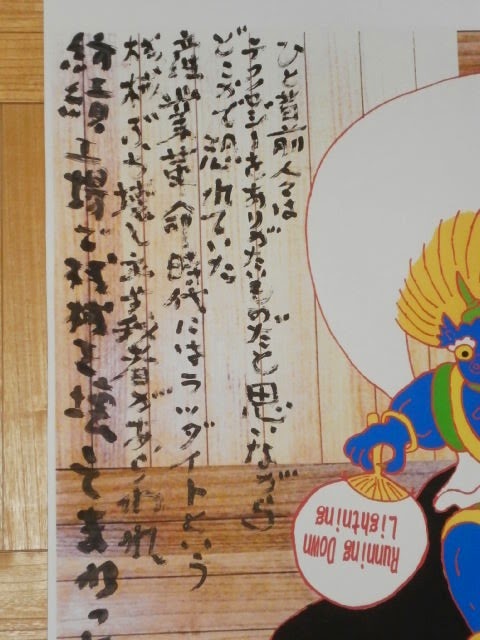 ひと昔前人々は
テクノロジーをありがたいものだと思いながら
どこかで恐れていた
産業革命時代にはラッダイトという
機械ぶち壊し主義者があらわれ
紡績工場で機械を壊してまわっ
Running Down
Lightning